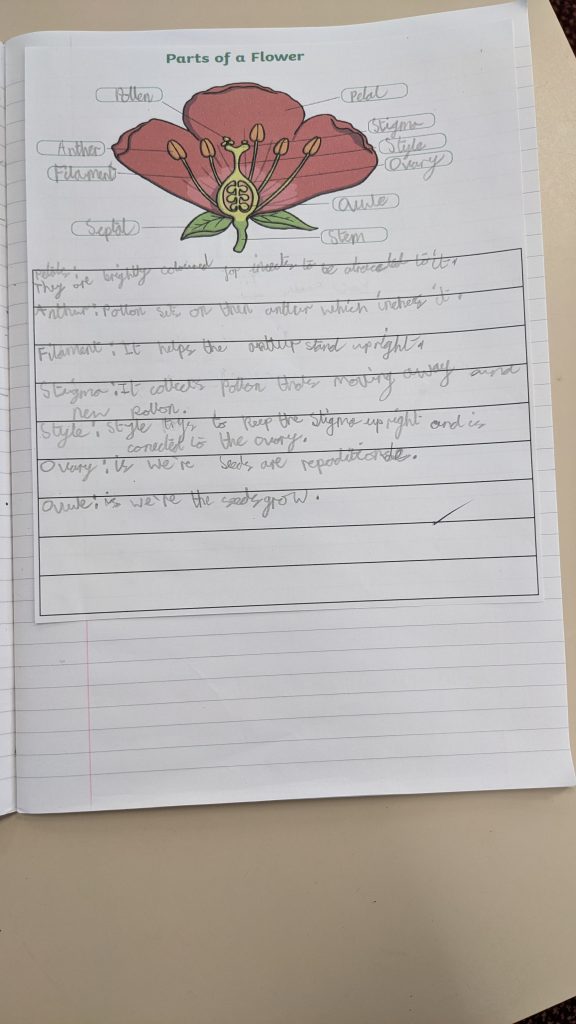 Parts of a Flower
Pollen
Petal
Stigma
Anther
Style
Filament
Ovary
Ovule
Septal
Stem
Petals:
They are brightly coloured for insects to be atracted to it.
Anthur: Pollon sits on then anthur which it.
Filament: It helps the anthur stand upright.
Stigma: It collects Pollon thats moving away and
new Pollon.
Style: Style trys to keep the Stigma upright and is
conected to the ovary.
Ovary: is we're Seeds are
Ovule: is we're the seeds grow.